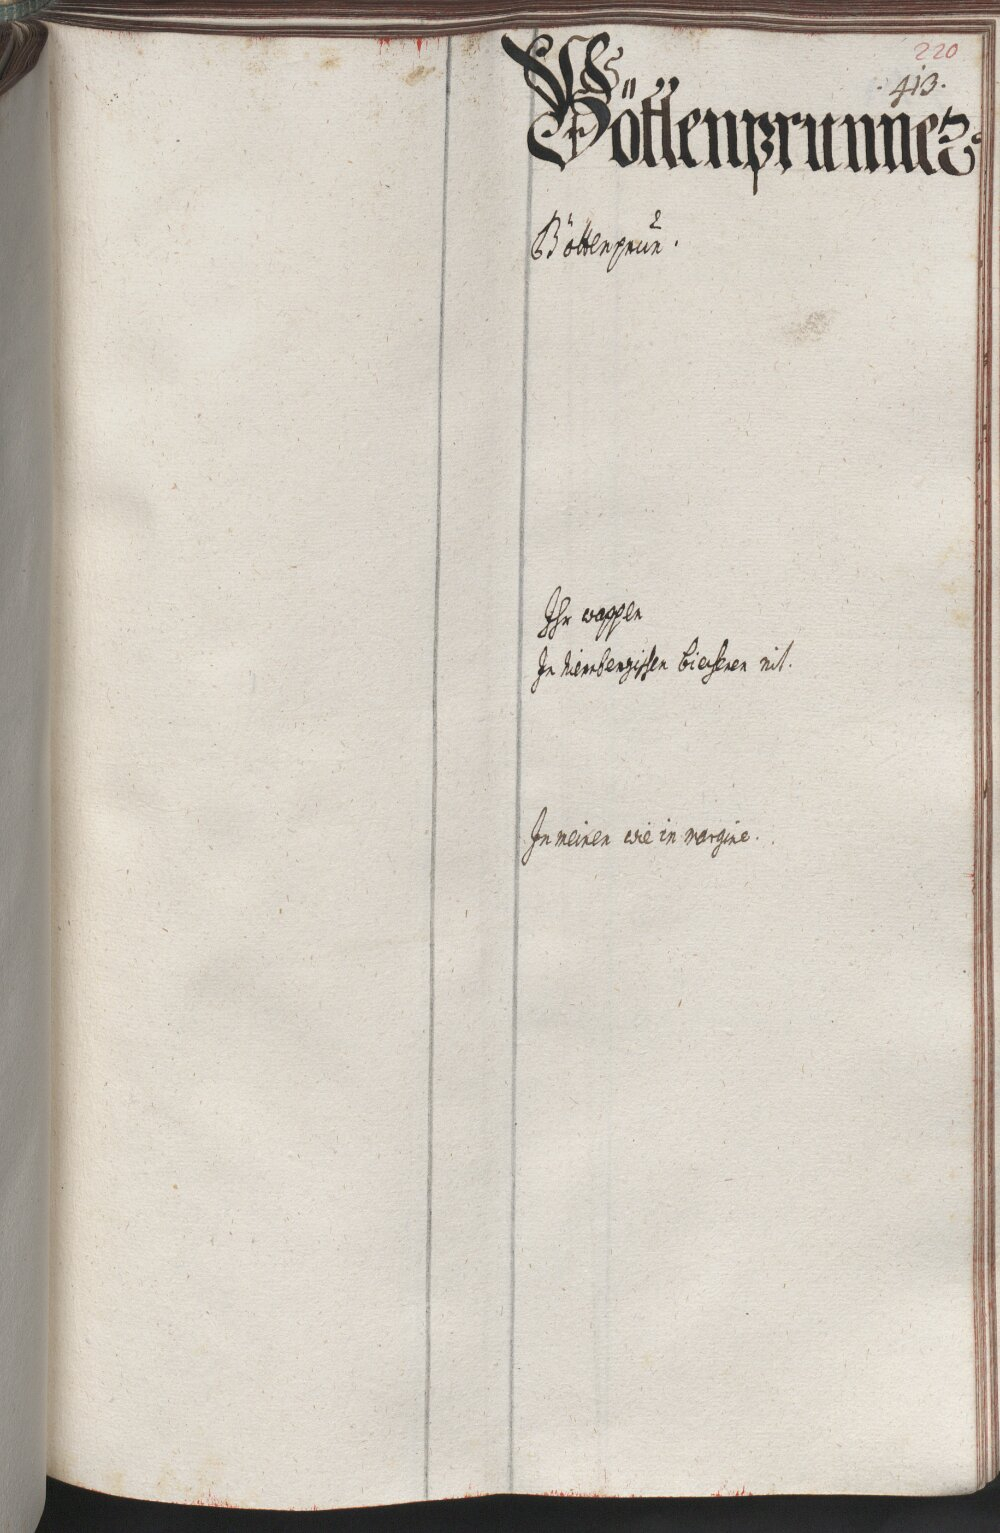 220
413.
Pöttenprunner
Pöttenprun̄.
Ihr wappen
In Niernbergissen biecheren nit.
In meinen wie in margine.